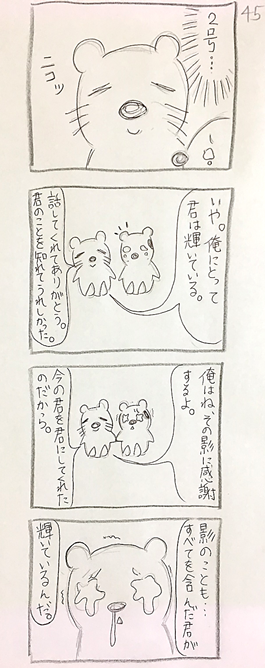 45
2号…
ニコッ
いや。俺にとって
君は輝いている。
話してくれてありがとう。
君のことを知れてうれしかった。
俺はね、その影に感謝
するよ。
今の君を君にしてくれた
のだから。
影のことも…
すべてを含んだ君が
輝いているんだ。